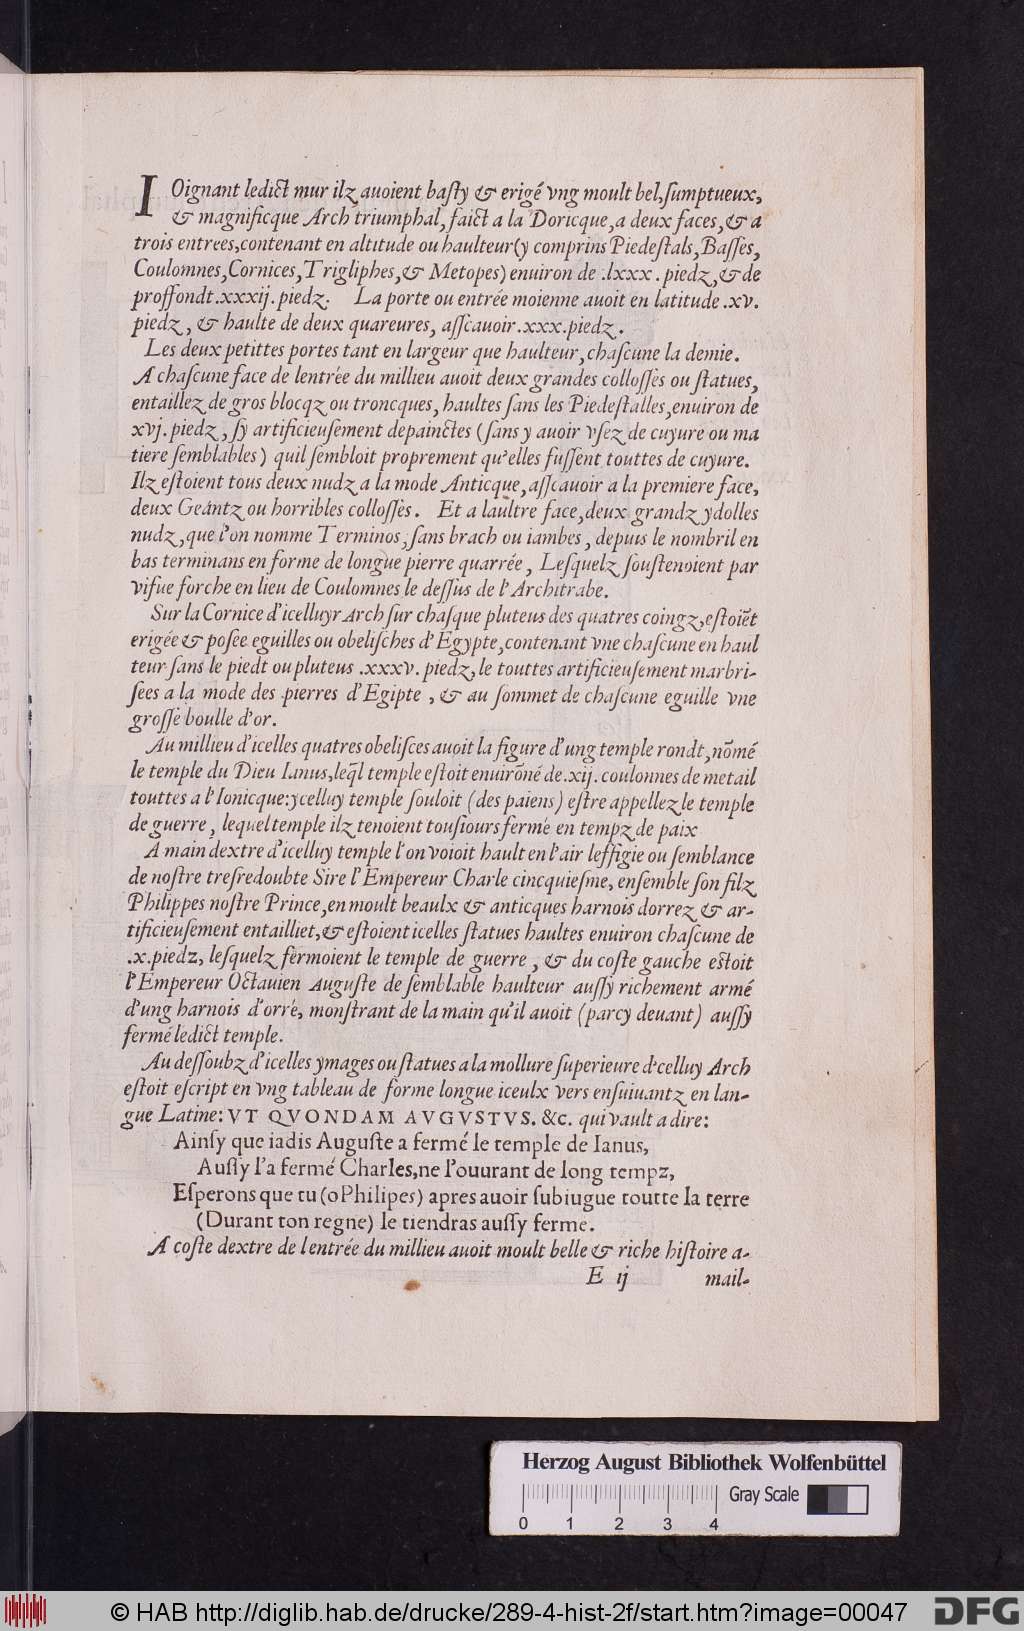 IOignant ledict mur ilz auoient baſty & erigé vng moult bel, ſumptueux,
& magnificque Arch triumphal, faict a la Doricque, a deux faces, & a
trois entrees, contenant en altitude ou haulteur (y comprins Piedeſtals, Baſſes,
Coulomnes, Cornices, Trigliphes, & Metopes) enuiron de .lxxx. piedz, & de
proffondt .xxxij. piedz. La porte ou entrée moienne auoit en latitude .xv.
piedz, & haulte de deux quareures, aſſcauoir .xxx. piedz.
Les deux petittes portes tant en largeur que haulteur, chaſcune la demie.
A chaſcune face de lentrée du millieu auoit deux grandes colloſſes ou ſtatues,
entaillez de gros blocqz ou troncques, haultes ſans les Piedeſtalles, enuiron de
xvj. piedz, ſy artificieuſement depainctes (ſans y auoir vſez de cuyure ou ma
tiere ſemblables) quil ſembloit proprement qu'elles fuſſent touttes de cuyure.
Ilz eſtoient tous deux nudz a la mode Anticque, aſſcauoir a la premiere face,
deux Geántz ou horribles colloſſes. Et a laultre face, deux grandz ydolles
nudz, que l'on nomme Terminos, ſans brach ou iambes, depuis le nombril en
bas terminans en forme de longue pierre quarrée, Leſquelz ſouſtenoient par
viſue forche en lieu de Coulomnes le deſſus de l'Architrabe.
Sur la Cornice d'icelluyr Arch ſur chaſque pluteus des quatres coingz, eſtoiēt
erigée & poſee eguilles ou obeliſches d'Egypte, contenant vne chaſcune en haul
teur ſans le piedt ou pluteus .xxxv. piedz, le touttes artificieuſement marbri-
ſees a la mode des pierres d'Egipte, & au ſommet de chaſcune eguille vne
groſſe boulle d'or.
Au millieu d'icelles quatres obeliſces auoit la figure d'ung temple rondt, nōmé
le temple du Dieu Ianus, leq̄l temple eſtoit enuirōné de .xij. coulonnes de metail
touttes a l'Ionicque: ycelluy temple ſouloit (des paiens) eſtre appellez le temple
de guerre, lequel temple ilz tenoient touſiours ferme en tempz de paix
A main dextre d'icelluy temple l'on voioit hault en l'air leffigie ou ſemblance
de noſtre treſredoubte Sire l'Empereur Charle cincquieſme, enſemble ſon filz
Philippes noſtre Prince, en moult beaulx & anticques harnois dorrez & ar-
tificieuſement entailliet, & eſtoient icelles ſtatues haultes enuiron chaſcune de
.x. piedz, leſquelz fermoient le temple de guerre, & du coſte gauche eſtoit
l'Empereur Octauien Auguſte de ſemblable haulteur auſſy richement armé
d'ung harnois d'orré, monſtrant de la main qu'il auoit (parcy deuant) auſſy
fermé ledict temple.
Au deſſoubz d'icelles ymages ou ſtatues a la mollure ſuperieure d'celluy Arch
eſtoit eſcript en vng tableau de forme longue iceulx vers enſuiuantz en lan-
gue Latine: VT QVONDAM AVGVSTVS. &c. qui vault a dire:
Ainſy que iadis Auguſte a fermé le temple de Ianus,
Auſſy l'a fermé Charles, ne l'ouurant de long tempz,
Eſperons que tu (o Philipes) apres auoir ſubiugue toutte la terre
(Durant ton regne) le tiendras auſſy ferme.
A coſte dextre de lentrée du millieu auoit moult belle & riche hiſtoire a-
E ij mail-
Herzog August Bibliothek Wolfenbüttel
Gray Scale
0 1 2 3 4
© HAB http://diglib.hab.de/drucke/289-4-hist-2f/start.htm?image=00047
DFG